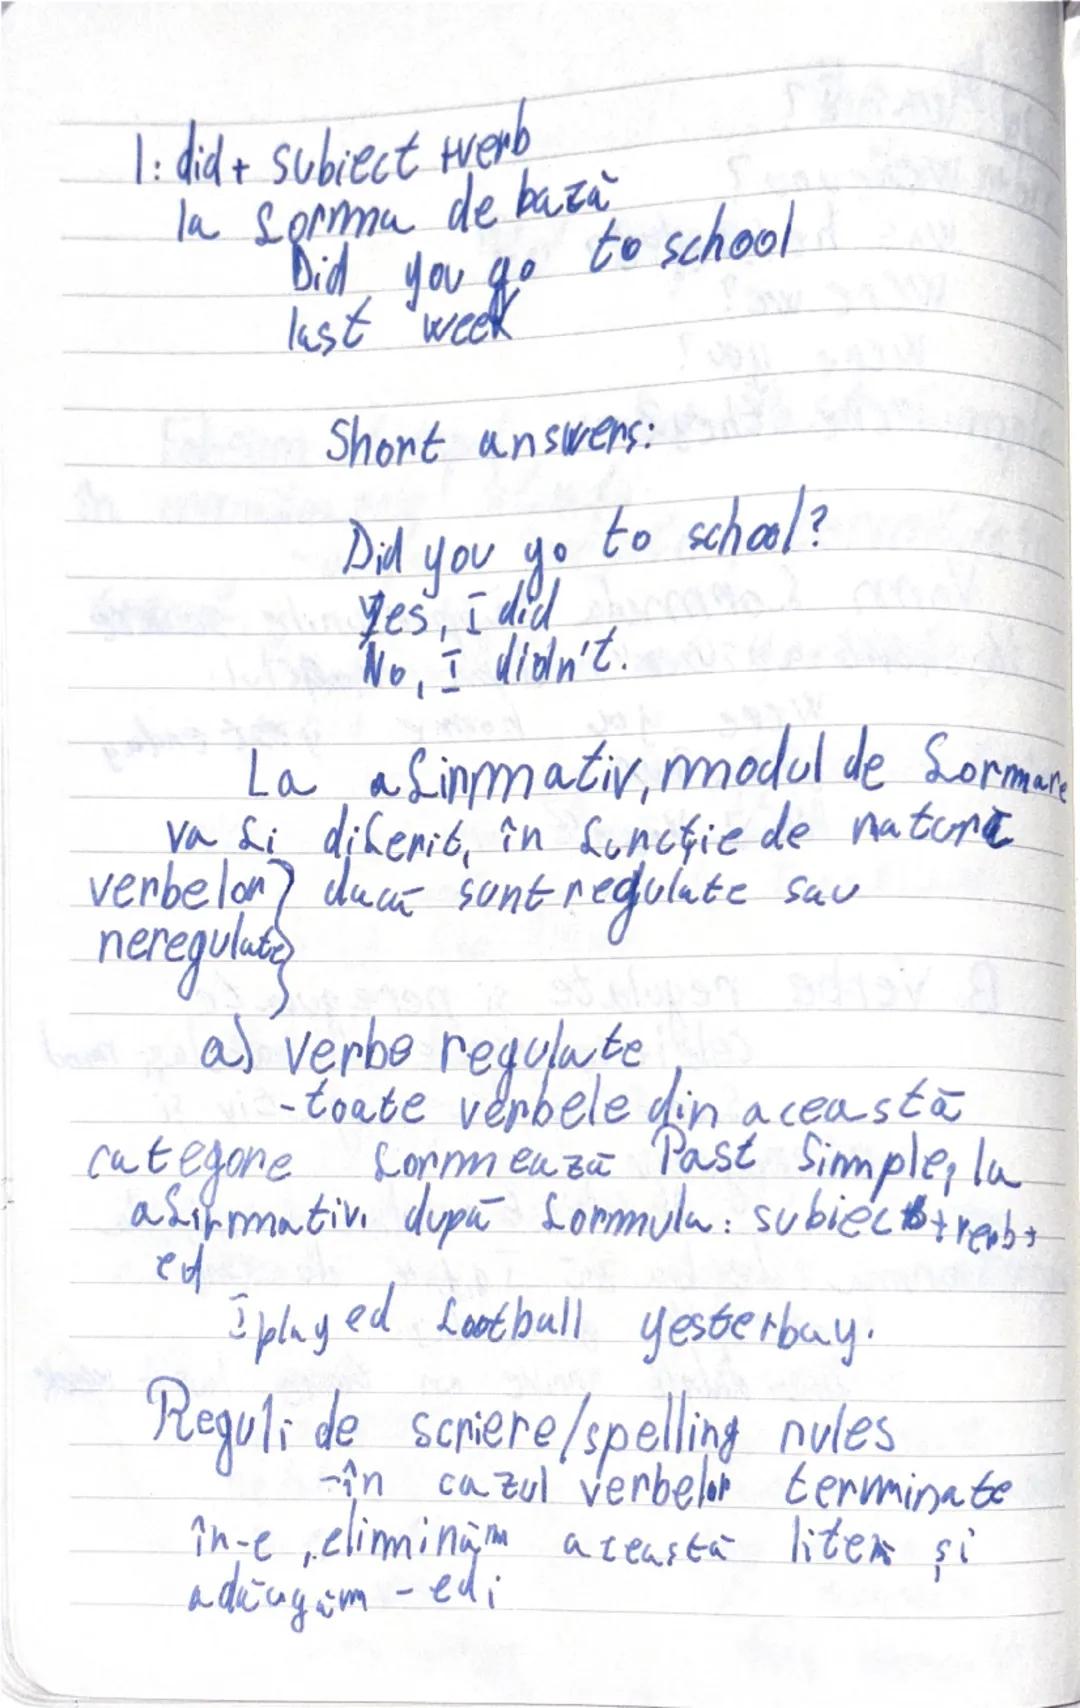 I: did + subiect + verb
la forma de bază
Did you go to school
last week
Short answers:
Did you go to school?
Yes, I did
No, I didn't.
La afirmativ, modul de formare
va fi diferit, în funcție de natura
verbelor} dacă sunt regulate sau
neregulate}
a) verbe regulate
-toate verbele din această
categore formează Past Simple, la
afirmativ, după formula: subiect + verb +
ed
I played football yesterbay.
Reguli de scriere/spelling rules
-în cazul verbelor terminate
în -e, eliminăm această literă și
adăugăm -ed;